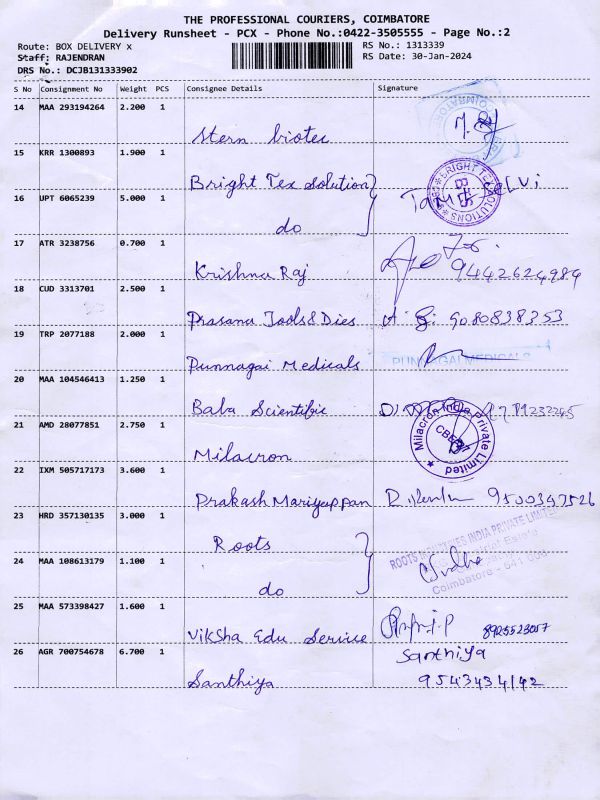 THE PROFESSIONAL COURIERS, COIMBATORE
Delivery Runsheet - PCX - Phone No.:0422-3505555 - Page No.:2
Route: BOX DELIVERY x RS No.: 1313339
Staff: RAJENDRAN RS Date: 30-Jan-2024
DRS No.: DCJB131333902
S No Consignment No Weight PCS Consignee Details Signature
14 MAA 293194264 2.200 1
Stern biotec
15 KRR 1300893 1.900 1
Bright Tex Solution
BRIGHT TEX SOLUTIONS
16 UPT 6065239 5.000 1
do
17 ATR 3238756 0.700 1
Krishna Raj 9442624984
18 CUD 3313701 2.500 1
Prasana Tools & Dies 9080838353
19 TRP 2077188 2.000 1
Punnagai Medicals PUNNAGAI MEDICALS
20 MAA 104546413 1.250 1
Baba Scientific
21 AMD 28077851 2.750 1
Milacron Milacron India Private Limited
22 IXM 505717173 3.600 1
Prakash Mariyappan 9500347526
23 HRD 357130135 3.000 1
Roots ROOTS INDUSTRIES INDIA PRIVATE LIMITED
24 MAA 108613179 1.100 1
do Coimbatore - 641
25 MAA 573398427 1.600 1
Viksha Edu Service 8925523057
26 AGR 700754678 6.700 1 Santhiya
Santhiya 9543434142